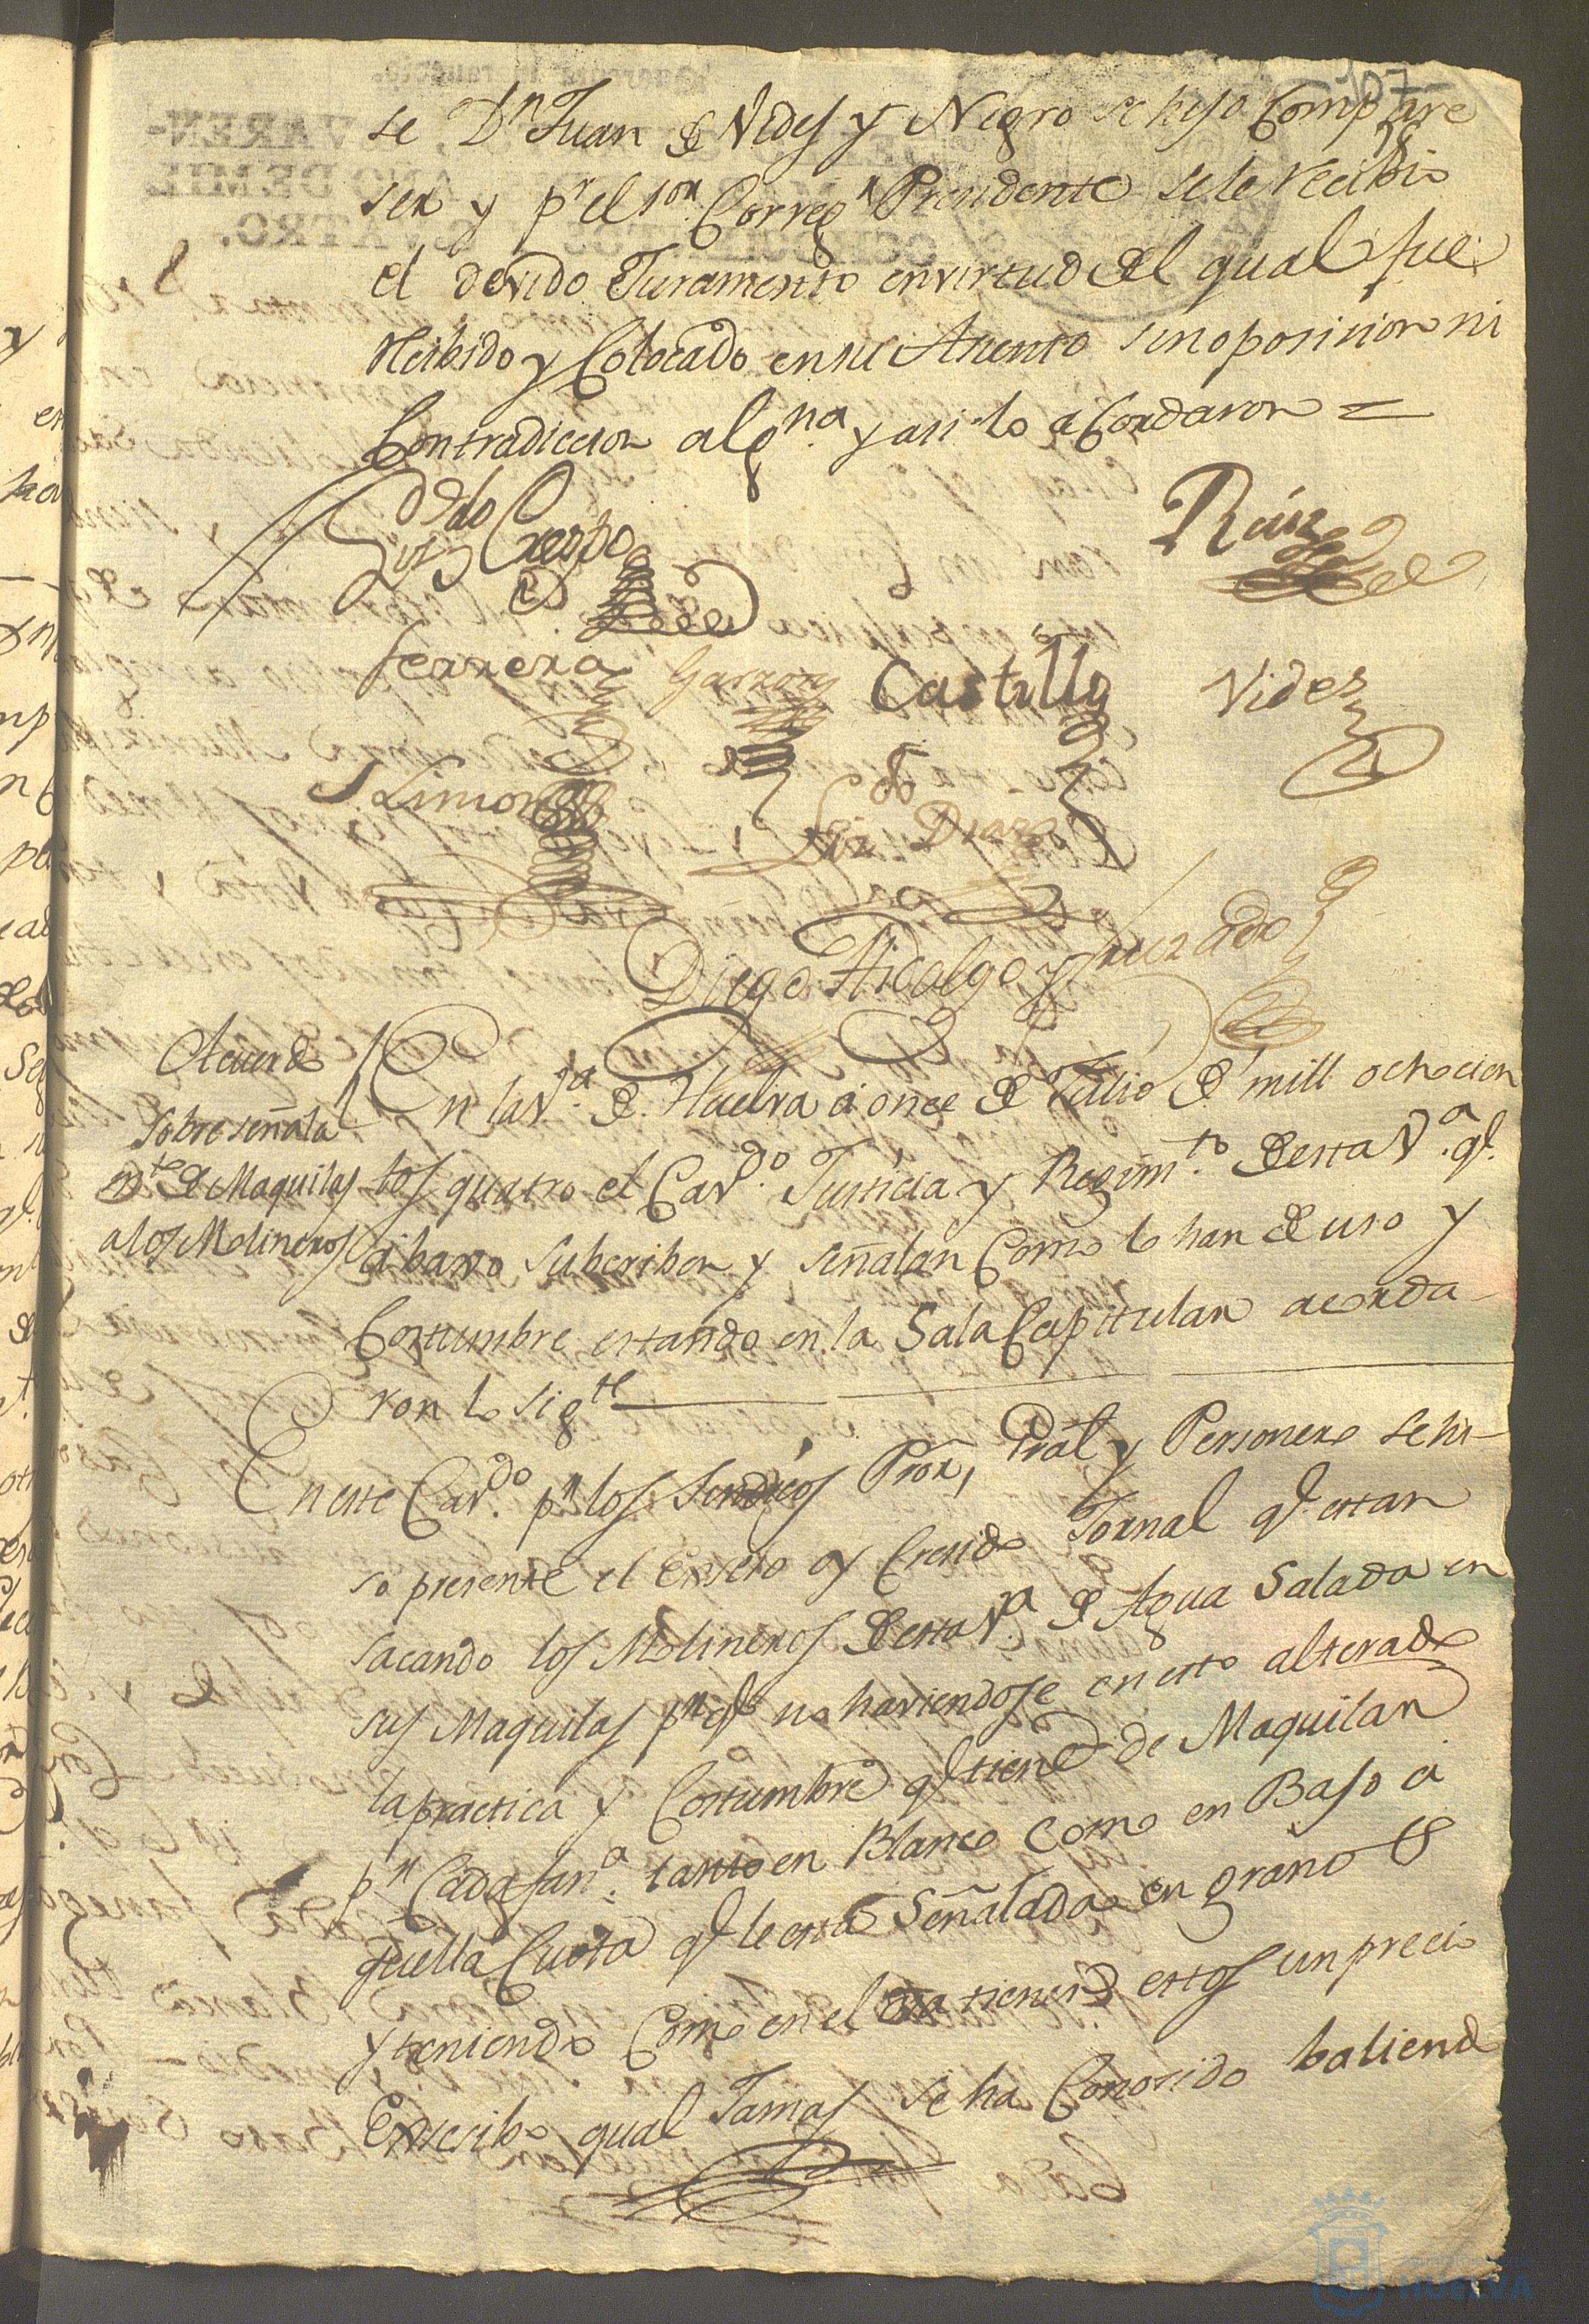 107
se Dn Juan de Vides y Negro se hiso Compare
ser y pr el sor Corregr Presidente se le recibio
el devido Juramento en virtud del qual fue
recibido y Colocado en su Asiento sin oposicion ni
Contradiccion algna y asi lo acordaron =
Crespo
Ruiz
ferrera Garzon Castillo Vides
Limon
Diego Hidalgo y Quezado
Acuerdo
sobre señala
mto de Maquilas
a los Molineros
En la Va de Huelva a once de Julio de mill ochocien
tos quatro el Cavdo Justicia y Regimto de esta Va qe
abaxo subscriben y señalan Como lo han de uso y
Costumbre estando en la Sala Capitular acorda
ron lo sigte
En este Cavdo pr los Sindicos Pror, Gral y Personero se hi-
so presente el Exseso y Cresido Jornal qe estan
sacando los Molineros de esta Va de Agua Salada en
sus Maquilas pr qe no haviendose en esto alterado
la practica y Costumbre qe tiene de Maquilar
pr Cada fana tanto en Blanco como en Baso a
quella Cuota qe le esta Señalada en grano
y teniendo Como en el dia tienen estos un precio
Exsesibo qual Jamas se ha Conosido baliendo
HUELVA